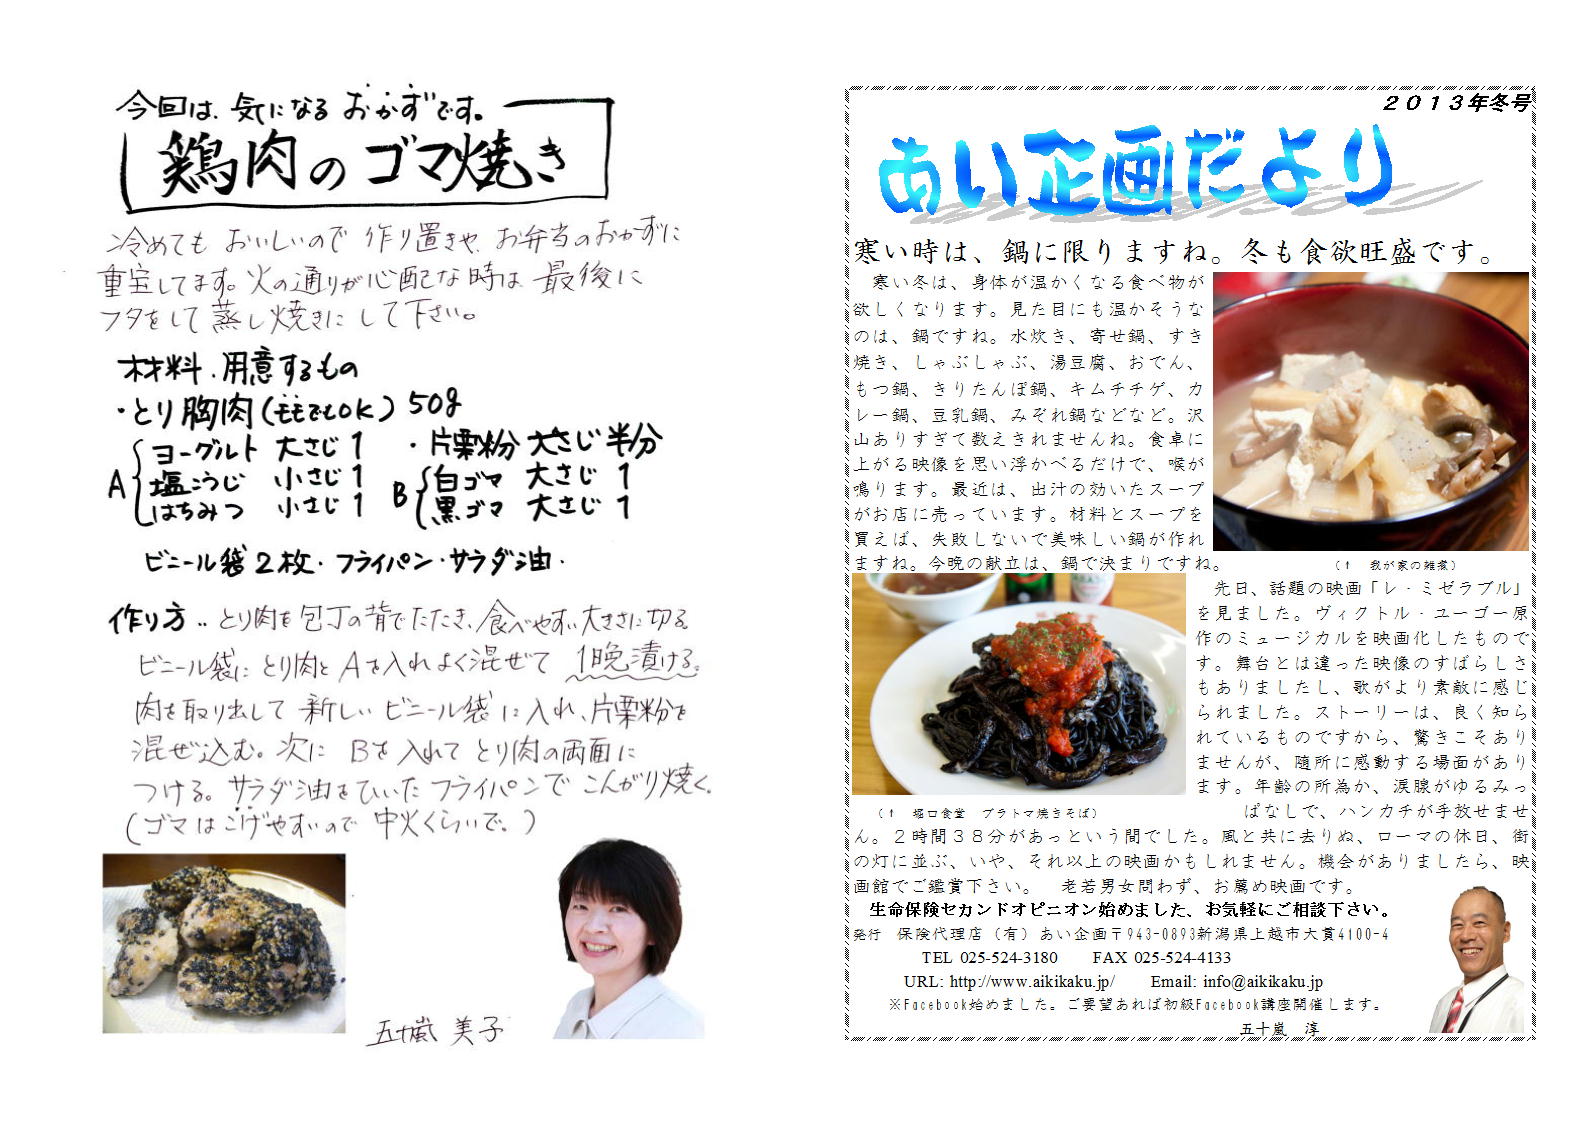 今回は、気になる おかずです。
鶏肉のゴマ焼き
冷めても おいしいので 作り置きや、お弁当のおかずに
重宝してます。火の通りが心配な時は、最後に
フタをして蒸し焼きにして下さい。
材料、用意するもの
・とり胸肉(ももでもOK) 50g
A ヨーグルト 大さじ 1
塩こうじ 小さじ 1
はちみつ 小さじ 1
・片栗粉 大さじ半分
B 白ゴマ 大さじ 1
黒ゴマ 大さじ 1
ビニール袋2枚・フライパン・サラダ油・
作り方‥とり肉を包丁の背でたたき、食べやすい大きさに切る
ビニール袋にとり肉とAを入れよく混ぜて 1晩漬ける。
肉を取り出して新しいビニール袋に入れ、片栗粉を
混ぜ込む。次に Bを入れてとり肉の両面に
つける。サラダ油をひいたフライパンでこんがり焼く。
(ゴマはこげやすいので中火くらいで。)
五十嵐 美子
2013年冬号
あい企画だより
寒い時は、鍋に限りますね。冬も食欲旺盛です。
寒い冬は、身体が温かくなる食べ物が
欲しくなります。見た目にも温かそうな
のは、鍋ですね。水炊き、寄せ鍋、すき
焼き、しゃぶしゃぶ、湯豆腐、おでん、
もつ鍋、きりたんぽ鍋、キムチチゲ、カ
レー鍋、豆乳鍋、みぞれ鍋などなど。沢
山ありすぎて数えきれませんね。食卓に
上がる映像を思い浮かべるだけで、喉が
鳴ります。最近は、出汁の効いたスープ
がお店に売っています。材料とスープを
買えば、失敗しないで美味しい鍋が作れ
ますね。今晩の献立は、鍋で決まりですね。
(↑ 我が家の雑煮)
先日、話題の映画「レ・ミゼラブル」
を見ました。ヴィクトル・ユーゴー原
作のミュージカルを映画化したもので
す。舞台とは違った映像のすばらしさ
もありましたし、歌がより素敵に感じ
られました。ストーリーは、良く知ら
れているものですから、驚きこそあり
ませんが、随所に感動する場面があり
ます。年齢の所為か、涙腺がゆるみっ
(↑ 堀口食堂 ブラトマ焼きそば)
ぱなしで、ハンカチが手放せませ
ん。2時間38分があっという間でした。風と共に去りぬ、ローマの休日、街
の灯に並ぶ、いや、それ以上の映画かもしれません。機会がありましたら、映
画館でご鑑賞下さい。 老若男女問わず、お薦め映画です。
生命保険セカンドオピニオン始めました、お気軽にご相談下さい。
発行 保険代理店(有)あい企画〒943-0893新潟県上越市大貫4100-4
TEL 025-524-3180 FAX 025-524-4133
URL: http://www.aikikaku.jp/ Email: info@aikikaku.jp
※Facebook始めました。ご要望あれば初級Facebook講座開催します。
五十嵐 淳